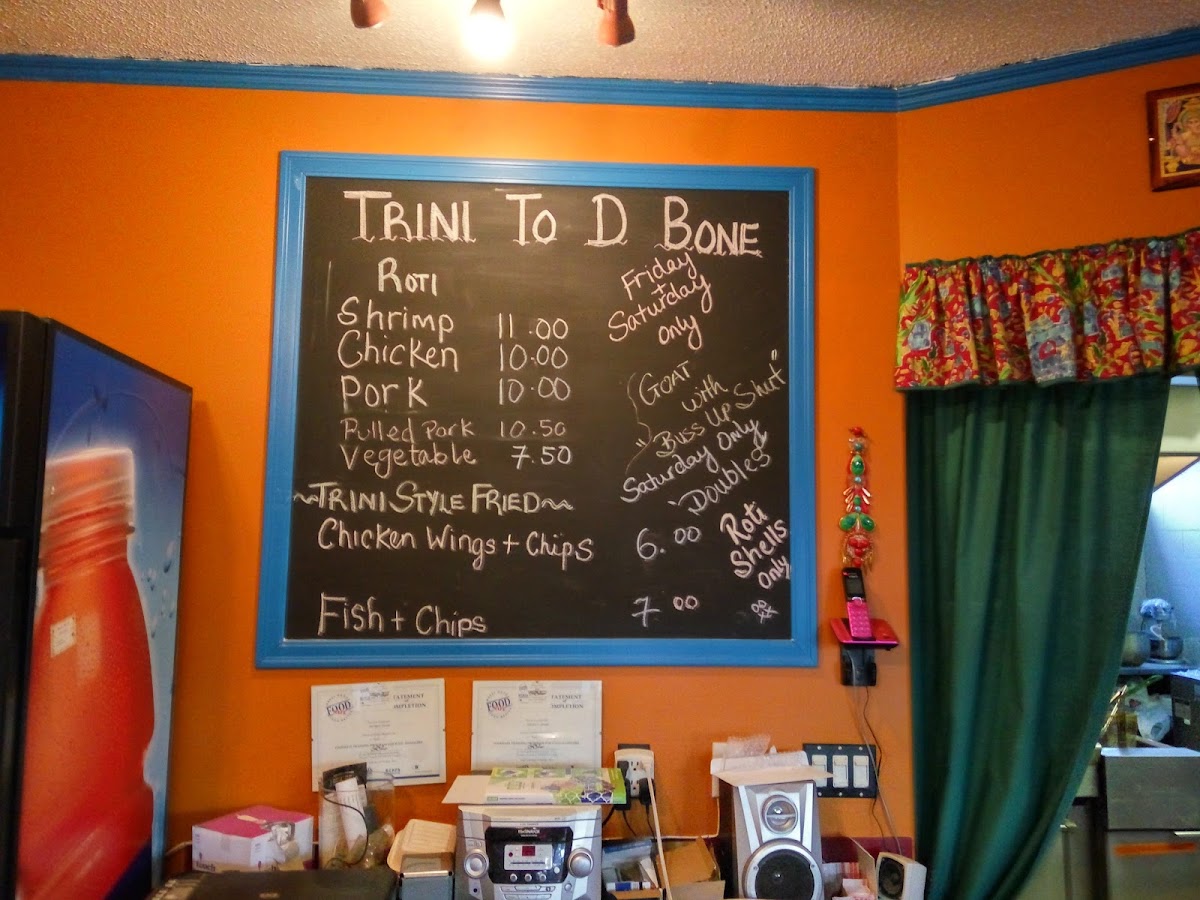 TRINI TO D BONE
ROTI
Shrimp 11.00
Chicken 10.00
Pork 10.00
Pulled Pork 10.50
Vegetable 7.50
~TRINI STYLE FRIED~
Chicken Wings + Chips 6.00
Fish + Chips 7 00
Friday
+
Saturday
only
GOAT
with
"Buss Up Shut"
Saturday Only
"Doubles"
Roti
Shells
only
FOOD
STATEMENT
OF
COMPLETION
FOOD
STATEMENT
OF
COMPLETION